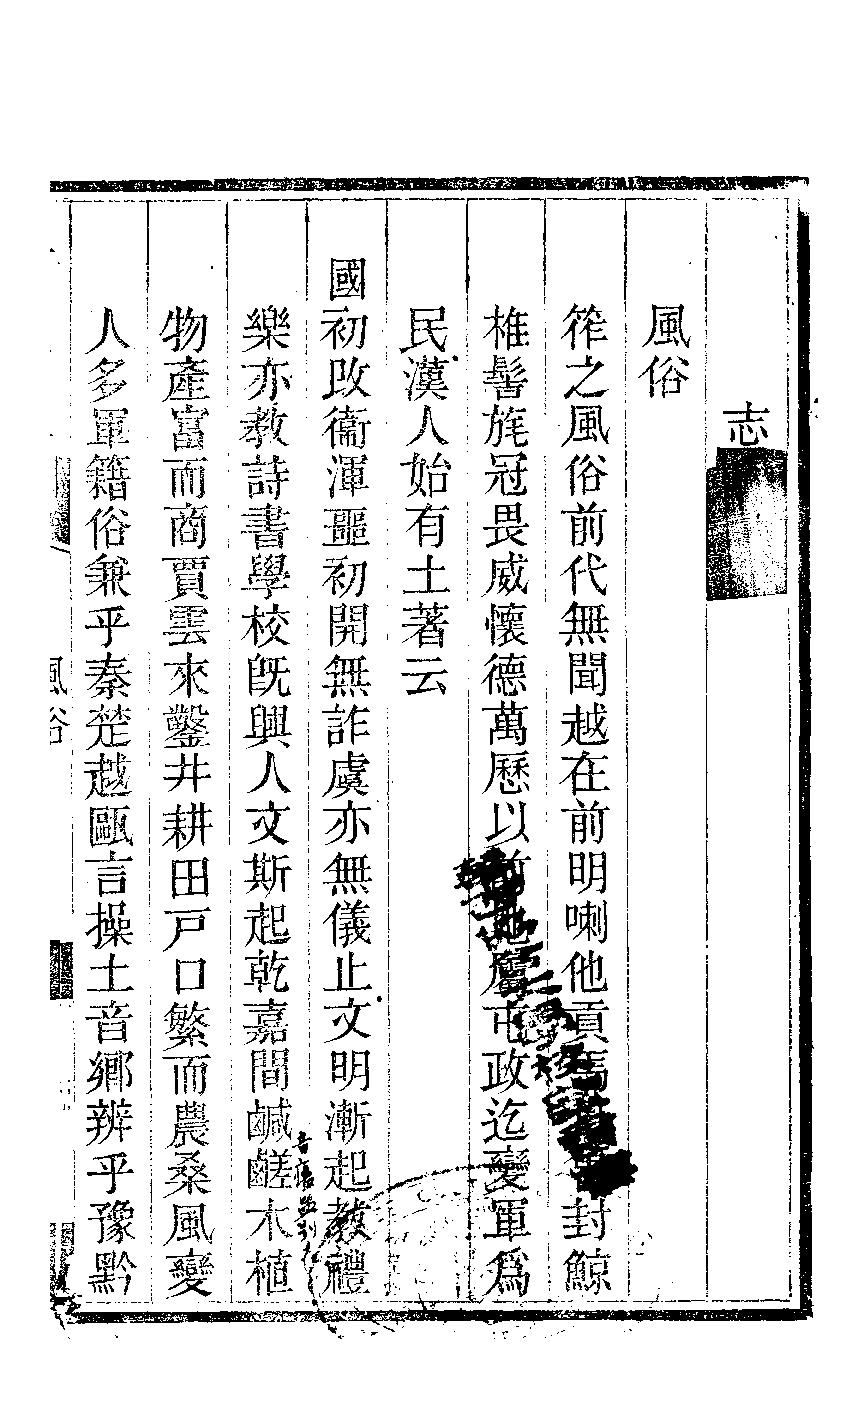 志
風俗
筰之風俗前代無聞越在前明喇他貢馬封鯨
椎髻旄冠畏威懷德萬歷以前地屬屯政迄變軍爲
民漢人始有土著云
國初改衞渾噩初開無詐虞亦無儀止文明漸起教禮
樂亦教詩書學校旣興人文斯起乾嘉間鹹鹺木植
物產富而商賈雲來鑿井耕田戸口繁而農桑風變
人多軍籍俗兼乎秦楚越甌言操土音鄉辨乎豫黔
風俗